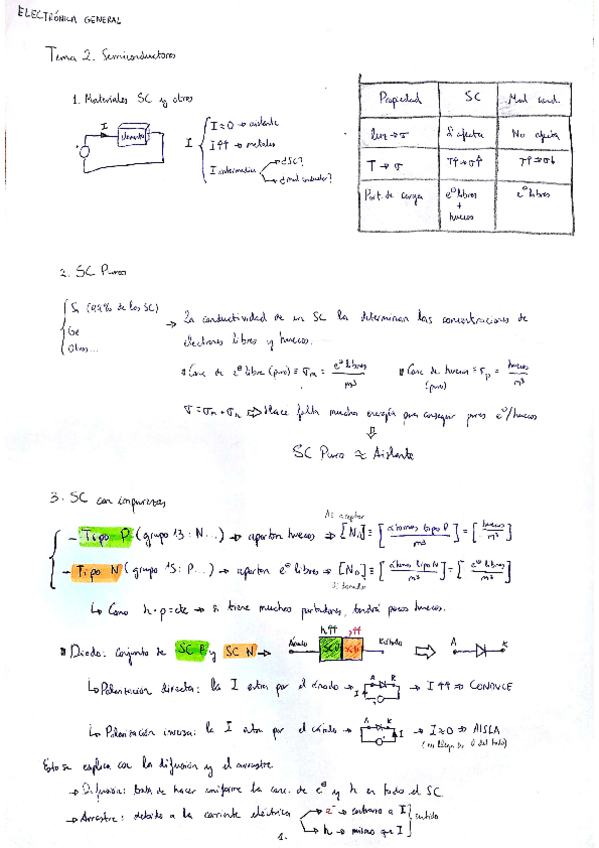 ELECTRÓNICA GENERAL
Tema 2. Semiconductores
1. Materiales SC y otros
I
elemento
I
I≈0 → aislante
I↑↑ → metales
I intermedias
¿SC?
¿mal conductor?
Propiedad SC Mal cond.
luz → σ Sí afecta No afecta
T → σ T↑ → σ↑ T↑ → σ↓
Port. de carga e⁻ libres + huecos e⁻ libres
2. SC Puros
Si (99% de los SC)
Ge
Otros...
→ La conductividad de un SC la determinan las concentraciones de
electrones libres y huecos.
Conc de e⁻ libre (puro) ≡ σn = e⁻ libres / m³
Conc de huecos ≡ σp = huecos / m³
(puro)
σ = σn + σn ⇒ Hace falta mucha energía para conseguir pares e⁻/huecos
⇓
SC Puro ≈ Aislante
3. SC con impurezas
- Tipo P (grupo 13: N...) → aportan huecos → [NA] ≡ [átomos tipo P / m³] = [huecos / m³]
- Tipo N (grupo 15: P...) → aportan e⁻ libres → [ND] ≡ [átomos tipo N / m³] = [e⁻ libres / m³]
↳ Como n·p = cte → si tiene muchos portadores, tendrá pocos huecos.
Diodo: conjunto de SC P y SC N →
Ánodo
Cátodo
A
K
↳ Polarización directa: la I entra por el ánodo → A K I → I↑↑ ⇒ CONDUCE
↳ Polarización inversa: la I entra por el cátodo → A K I → I≈0 ⇒ AISLA
Esto se explica con la difusión y el arrastre.
→ Difusión: trata de hacer uniforme la conc. de e⁻ y h en todo el SC.
→ Arrastre: debido a la corriente eléctrica
e⁻ → contrario a I
h → mismo que I
sentido
1.